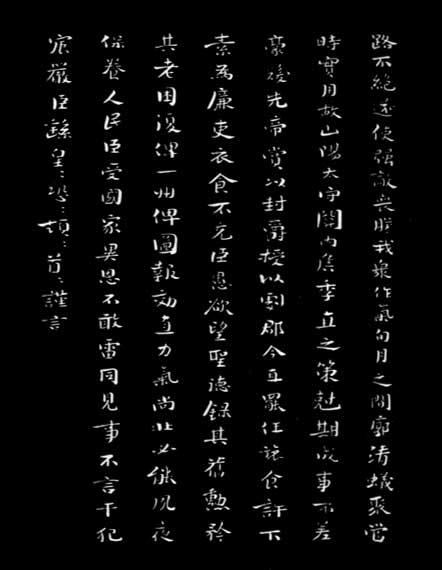 路不絶遂使强敵喪膽我衆作氣旬月之間廓清蟻聚當
時實用故山陽太守關内侯季直之策尅期成事不差
豪髮先帝賞以封爵授以劇郡今直罷任旅食許下
素為廉吏衣食不充臣愚欲望聖德録其舊勲矜
其老困復俾一州俾圖報効直力氣尚壯必能夙夜
保養人民臣受國家異恩不敢雷同見事不言干犯
宸嚴臣繇皇〻恐〻頓〻首〻謹言